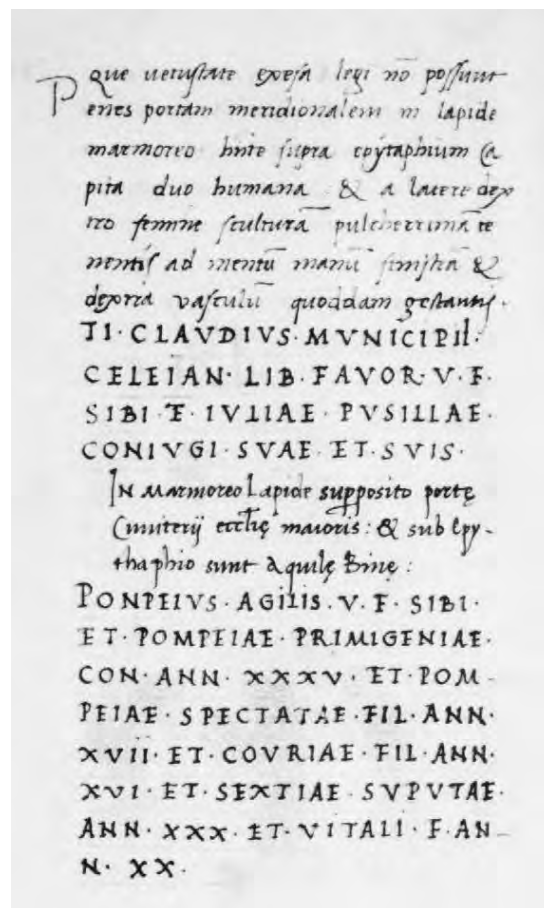 que uetustate exesa legi nō possunt
P enes portam meridionalem in lapide
marmoreo hnte supra epytaphium Ca
pita duo humana & a latere dex
tro femine sculturā pulcherrimā te
nentis ad mentū manū sinistrā &
dextra vasculū quoddam gestantis.
TI · CLAVDIVS · MVNICIPII ·
CELEIAN · LIB · FAVOR · V · F ·
SIBI · ET · IVLIAE · PVSILLAE ·
CONIVGI · SVAE · ET · SVIS ·
IN Marmoreo Lapide supposito portę
Cimiterij ecclię maioris : & sub Epy-
thaphio sunt Aquilę Binę :
PONPEIVS · AGILIS · V · F · SIBI ·
ET · POMPEIAE · PRIMIGENIAE ·
CON · ANN · XXXV · ET · POM -
PEIAE · SPECTATAE · FIL · ANN ·
XVII · ET · COVRIAE · FIL · ANN ·
XVI · ET · SEXTIAE · SVPVTAE ·
ANN · XXX · ET · VITALI · F · AN -
N · XX ·